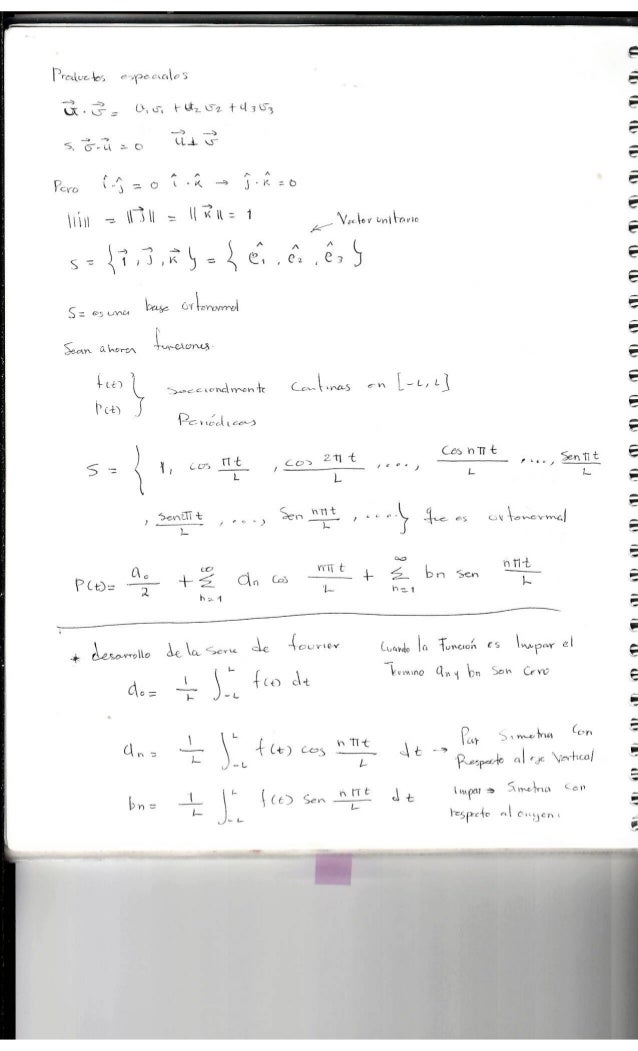 Productos especiales
u⃗ · v⃗ = u₁v₁ + u₂v₂ + u₃v₃
S. v⃗·u⃗ = 0 u⃗ ⊥ v⃗
Pero î·ĵ = 0 î·k̂ → ĵ·k̂ = 0
||i|| = ||j⃗|| = ||k⃗|| = 1
Vector unitario
S = {i⃗, j⃗, k⃗} = {ê₁, ê₂, ê₃}
S = es una base ortonormal
Sean ahora funciones.
f(t) } seccionalmente Continas en [-L, L]
P(t) } Periódicas
S = { 1, cos πt/L, cos 2πt/L, ...., Cos nπt/L, ...., Sen πt/L
, sen2πt/L, ...., Sen nπt/L, ....} que es ortonormal
P(t) = a₀/2 + ∞Σn=1 an cos nπt/L + ∞Σn=1 bn sen nπt/L
* desarrollo de la serie de fourier
Cuando la Función es Impar el
Termino an y bn son Cero
a₀ = 1/L ∫-L^L f(t) dt
an = 1/L ∫-L^L f(t) cos nπt/L dt → Par Simetria Con
Respecto al eje Vertical
bn = 1/L ∫-L^L f(t) Sen nπt/L dt Impar → Simetria con
respecto al origen.